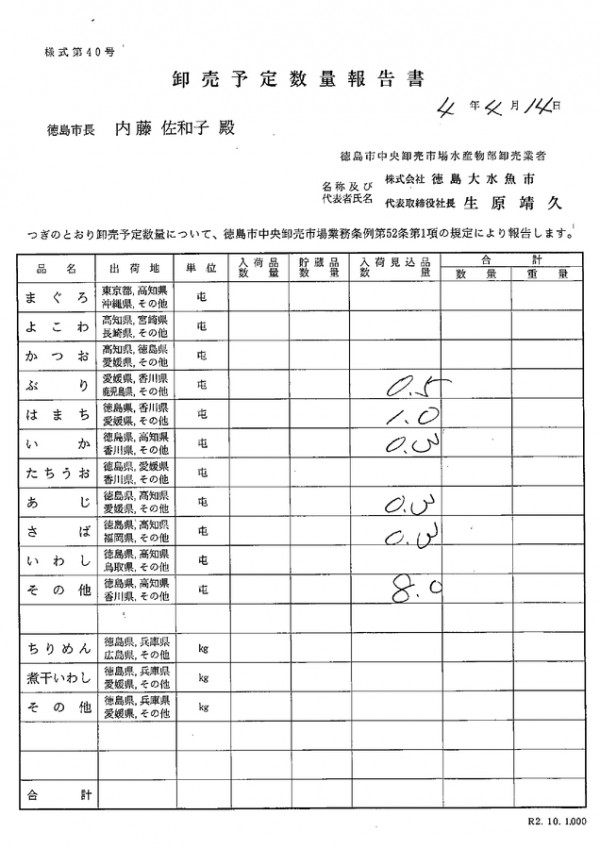 様式第40号
卸売予定数量報告書
4年4月14日
徳島市長 内藤 佐和子 殿
徳島市中央卸売市場水産物部卸売業者
名称及び 株式会社 徳島大水魚市
代表者氏名 代表取締役社長 生原靖久
つぎのとおり卸売予定数量について、徳島市中央卸売市場業務条例第52条第1項の規定により報告します。
品名 出荷地 単位 入荷品数量 貯蔵品数量 入荷見込品数量 合計
数量 重量
まぐろ 東京都, 高知県 沖縄県, その他 屯
よこわ 高知県, 宮崎県 長崎県, その他 屯
かつお 高知県, 徳島県 愛媛県, その他 屯
ぶり 愛媛県, 香川県 鹿児島県, その他 屯 0.5
はまち 徳島県, 香川県 愛媛県, その他 屯 1.0
いか 徳島県, 高知県 香川県, その他 屯 0.3
たちうお 徳島県, 愛媛県 香川県, その他 屯
あじ 徳島県, 高知県 愛媛県, その他 屯 0.3
さば 徳島県, 高知県 福岡県, その他 屯 0.3
いわし 徳島県, 高知県 鳥取県, その他 屯
その他 徳島県, 高知県 香川県, その他 屯 8.0
ちりめん 徳島県, 兵庫県 広島県, その他 kg
煮干いわし 徳島県, 兵庫県 愛媛県, その他 kg
その他 徳島県, 兵庫県 愛媛県, その他 kg
合計
R2. 10. 1.000